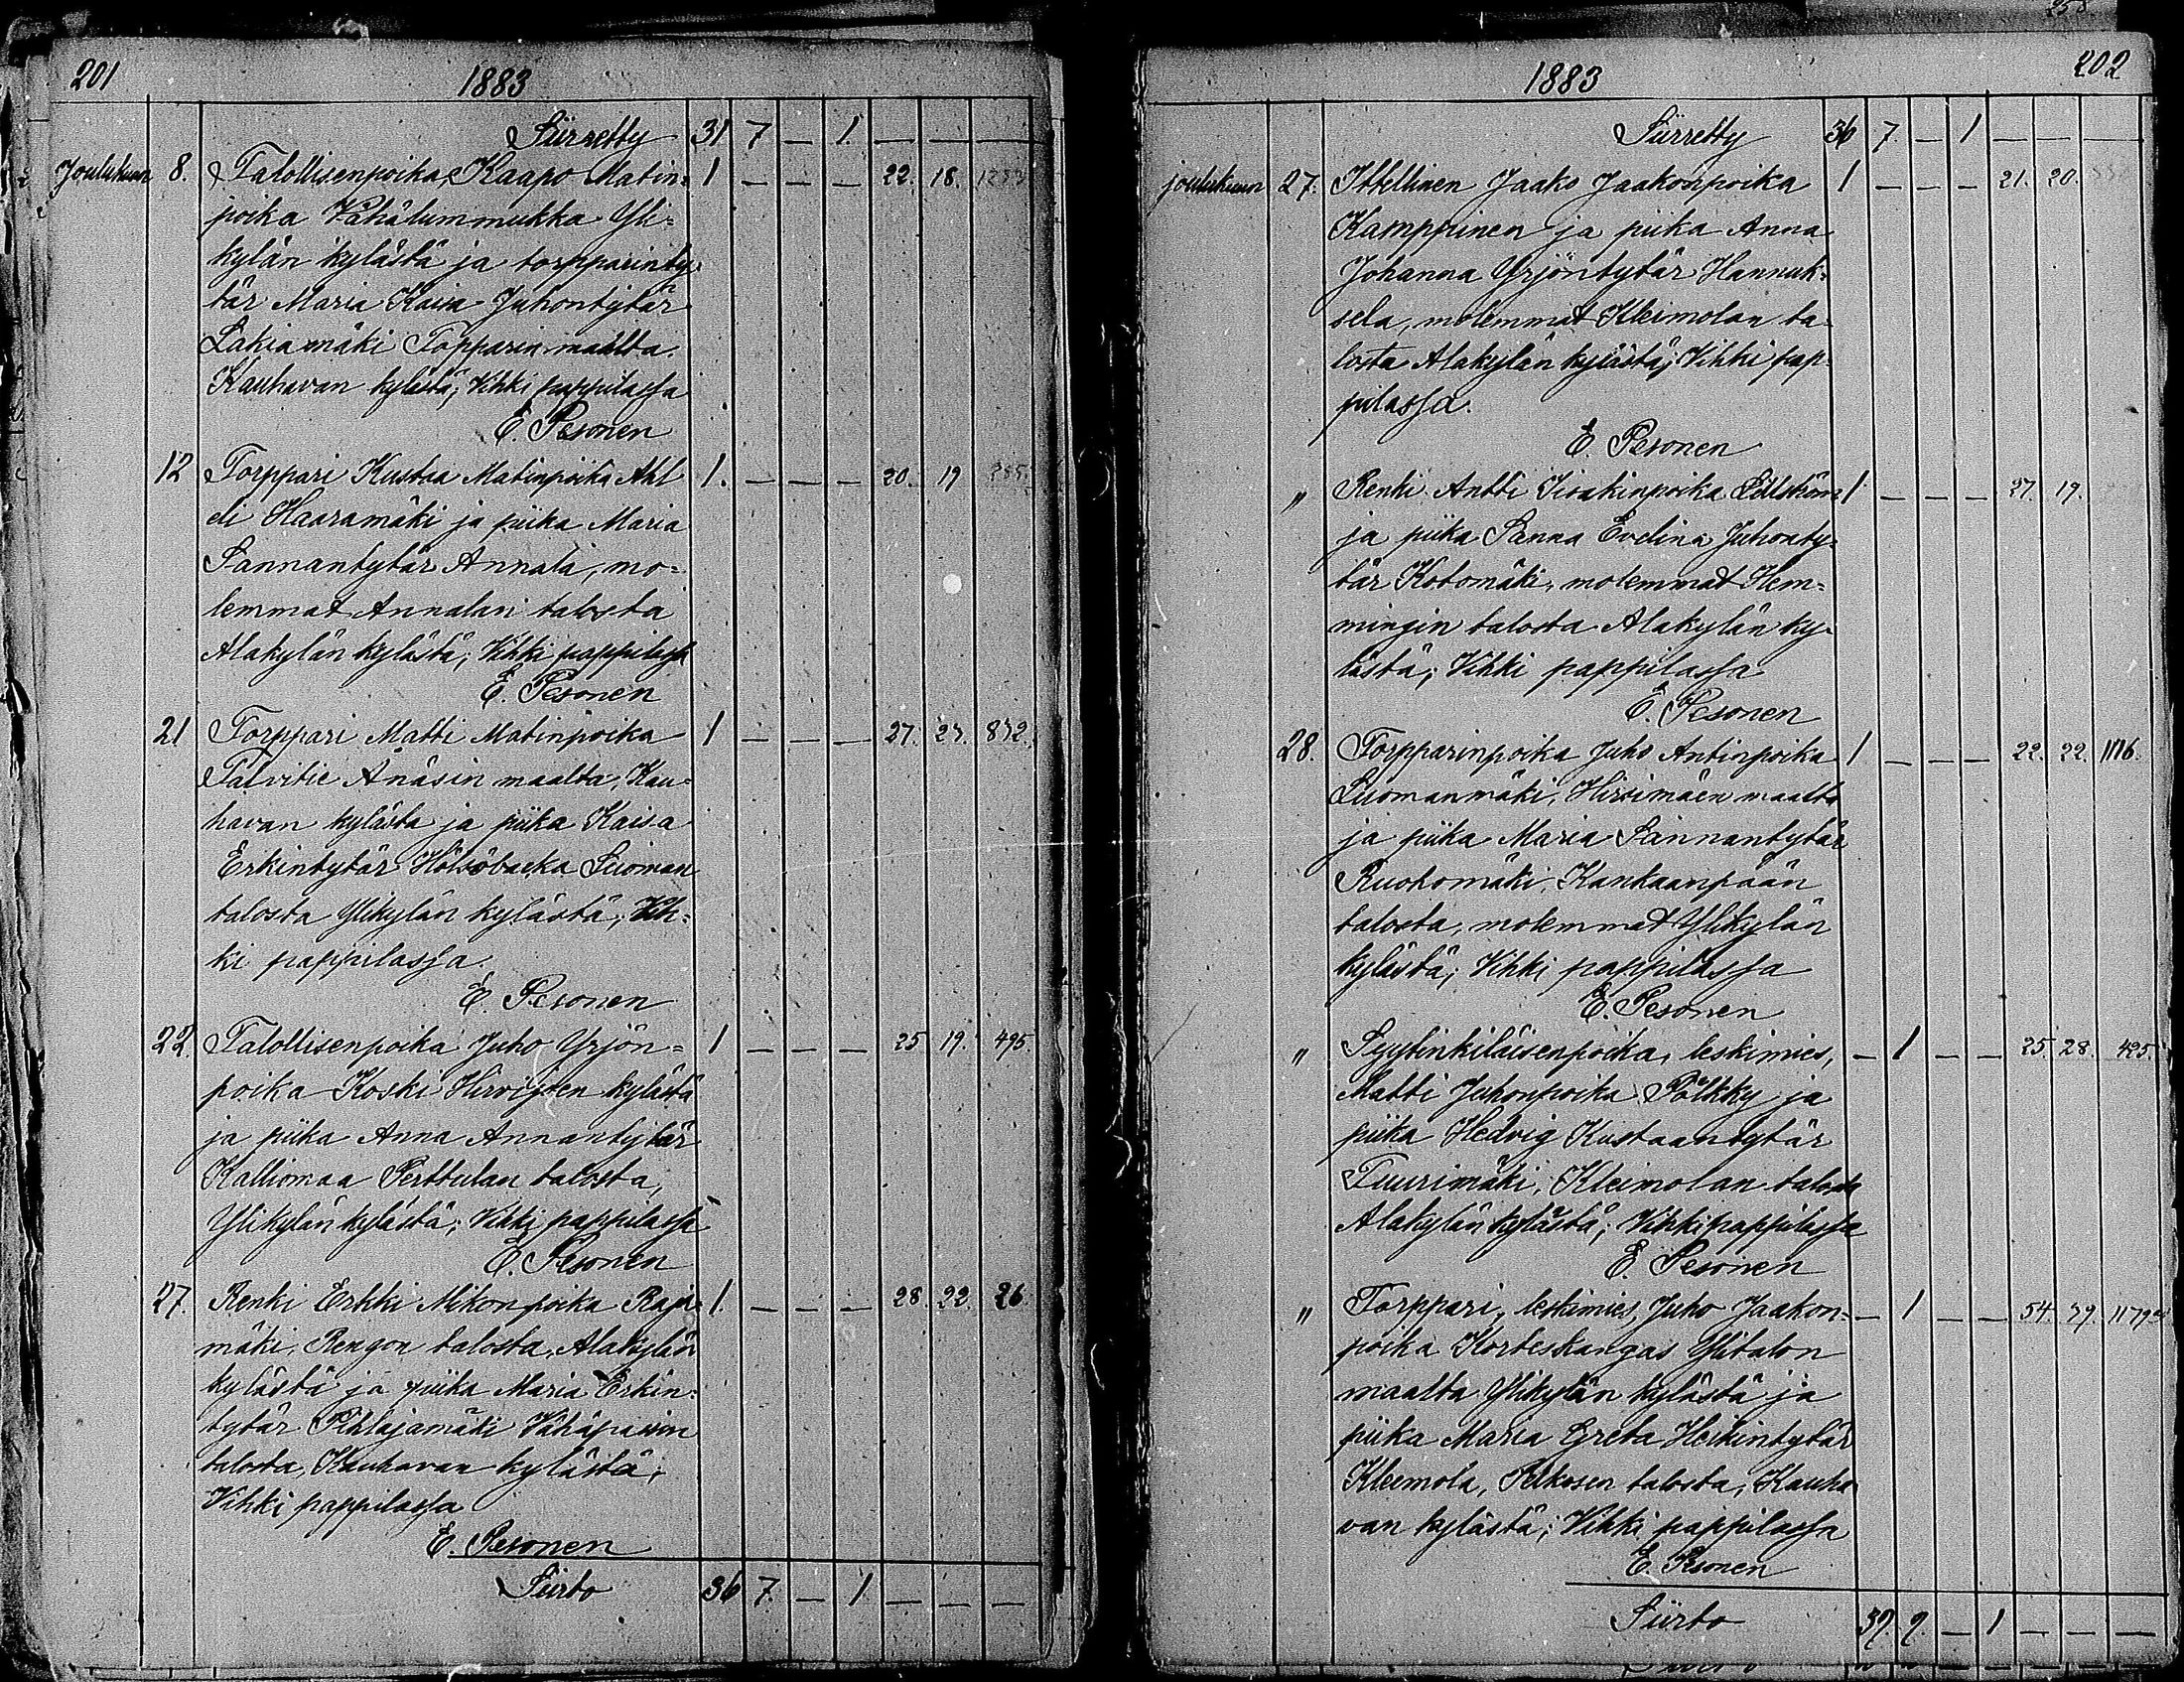 201 1883
Siirretty 31 7 — 1. — — —
Joulukuun 8. Talollisenpoika, Kaapo Matin= 1 — — — 22. 18.
poika Vähälummukka Yli=
kylän kylästä ja torpparinty=
tär Maria Kaisa Juhontytär
Lakiamäki Topparin maalta
Kauhavan kylästä; Vihki pappilassa
E. Pesonen
12 Torppari Kustaa Matinpoika Ahl
di Haaramäki ja piika Maria
Sannantytär Annala, mo=
lemmat Annalan talosta
Alakylän kylästä; Vihki pappilassa
1. — — — 20. 19
E. Pesonen
21 Torppari Matti Matinpoika 1 — — — 27. 27. 832.
Talvitie Änäsin maalta, Kau=
havan kylästä ja piika Kaisa
Erkintytär Suoman
talosta Ylikylän kylästä; Vih=
ki pappilassa.
E. Pesonen
22. Talollisenpoika Juho Yrjön= 1 — — — 25 19. 495.
poika Koski Hirvijoen kylästä
ja piika Anna Annantytär
Kalliomaa Perttulan talosta,
Ylikylän kylästä; Vihki pappilassa
E. Pesonen
27. Renki Erkki Mikonpoika Raja= 1. — — — 28. 22. 26.
mäki, Rengon talosta, Alakylän
kylästä ja piika Maria Erkin=
tytär Pihlajamäki Vähäpassin
talosta, Kauhavan kylästä;
Vihki pappilassa
E. Pesonen
Siirto 36 7. — 1 — — —
1883 202
Siirretty 36 7. — 1 — — —
joulukuun 27. Itsellinen Jaako Jaakonpoika 1 — — — 21. 20.
Kamppinen ja piika Anna
Johanna Yrjöntytär Hannuk=
sela, molemmat Kleimolan ta=
losta Alakylän kylästä; Vihki pap=
pilassa.
E. Pesonen
" Renki Antti Iisakinpoika 1 — — — 27. 19.
ja piika Sanna Evelina Juhonty=
tär Kotomäki, molemmat Hem=
mingin talosta Alakylän ky=
lästä; Vihki pappilassa
E. Pesonen
28. Torpparinpoika Juho Antinpoika 1 — — — 22. 22. 1176.
Luomanmäki, Hirsimäen maalta
ja piika Maria Sannantytär
Ruohomäki, Kankaanpään
talosta, molemmat Ylikylän
kylästä; Vihki pappilassa
E. Pesonen
" Syytinkiläisenpoika, leskimies, — 1 — — 25. 28. 495.
Matti Juhonpoika Pölkky ja
piika Hedvig Kustaantytär
Tuurimäki, Kleimolan talosta
Alakylän kylästä; Vihki pappilassa
E. Pesonen
" Torppari, leskimies, Juho Jaakon= — 1 — — 54. 39.
poika Korteskangas Ylitalon
maalta Ylikylän kylästä ja
piika Maria Greta Heikintytär
Kleemola, Pelkosen talosta, Kauha
van kylästä; Vihki pappilassa
E. Pesonen
Siirto 39. 9. — 1 — — —